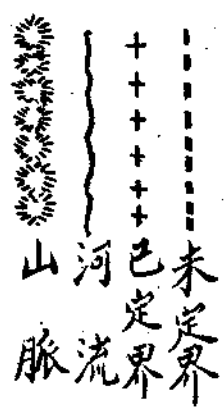 未定界
已定界
河流
山脈